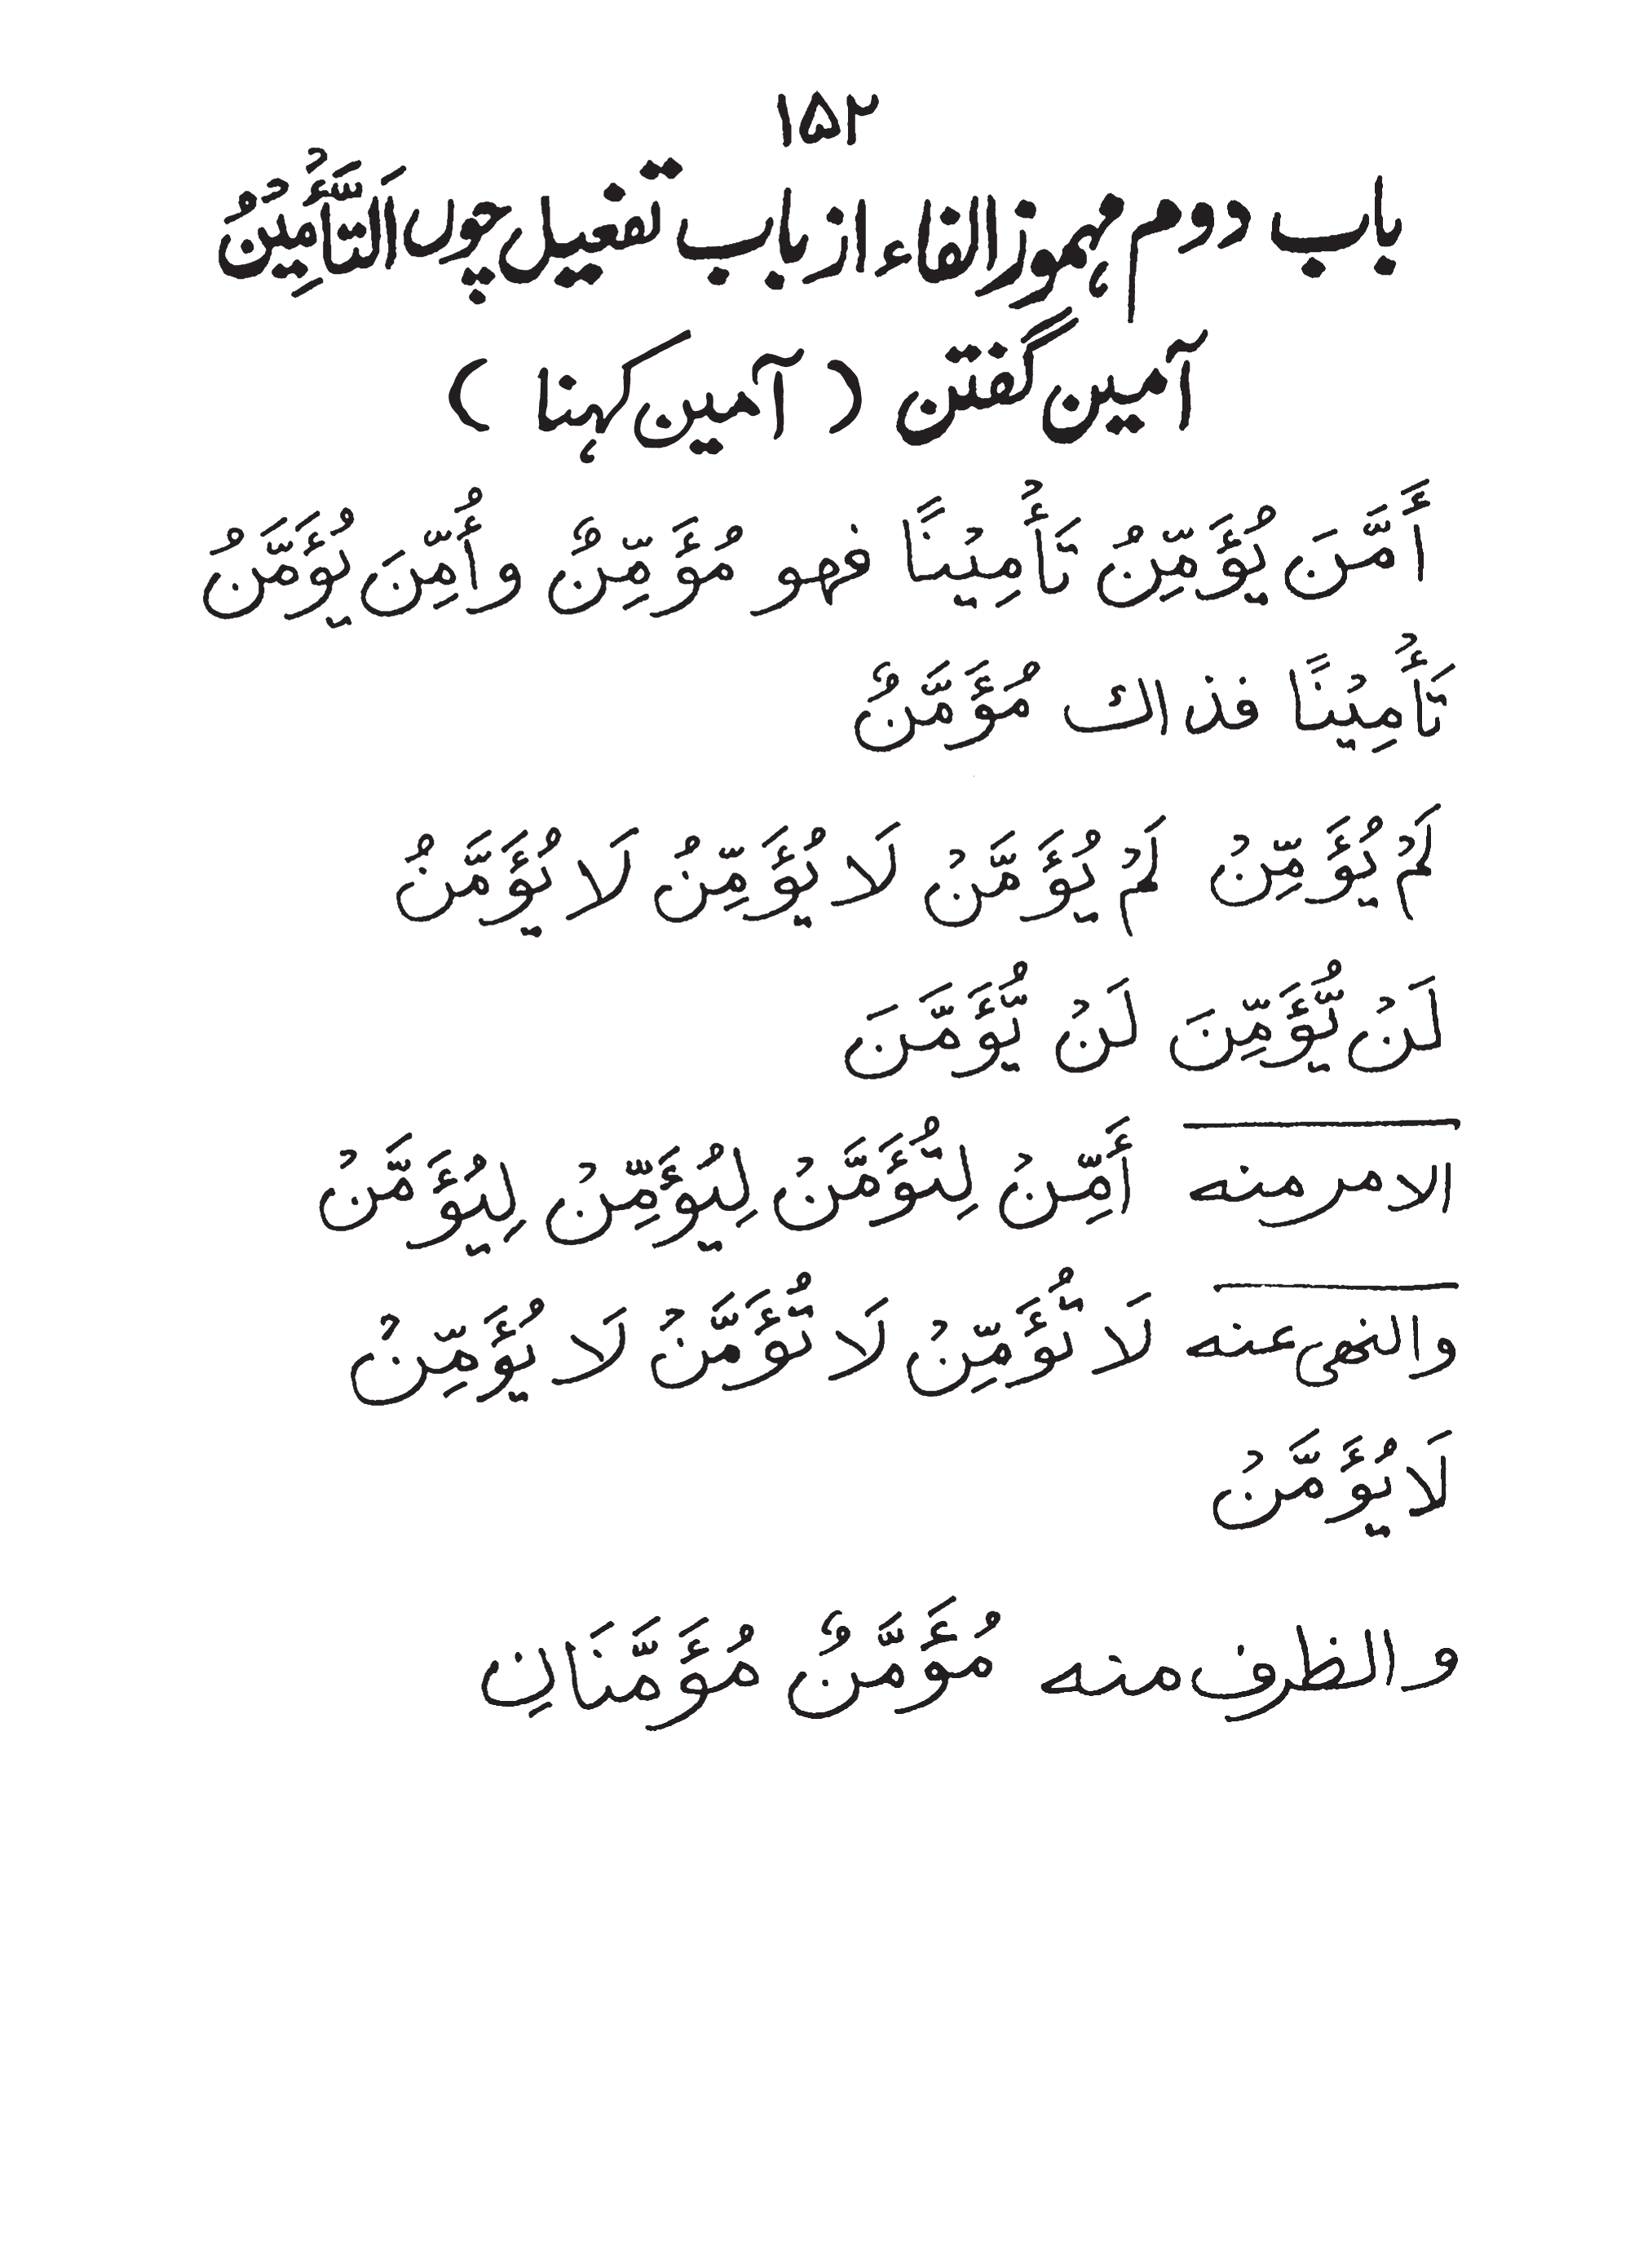 ۱۵۲
باب دوم مہموز الفاء از باب تفعیل چوں اَلتَّأْمِيْنُ
آمین گفتن ( آمین کہنا )
أَمَّنَ يُؤَمِّنُ تَأْمِيْنًا فهو مُؤَمِّنٌ وأُمِّنَ يُؤَمَّنُ
تَأْمِيْنًا فذاك مُؤَمَّنٌ
لَمْ يُؤَمِّنْ لَمْ يُؤَمَّنْ لَا يُؤَمِّنُ لَا يُؤَمَّنُ
لَنْ يُّؤَمِّنَ لَنْ يُّؤَمَّنَ
الامر منه أَمِّنْ لِتُؤَمَّنْ لِيُؤَمِّنْ لِيُؤَمَّنْ
والنهى عنه لَا تُؤَمِّنْ لَا تُؤَمَّنْ لَا يُؤَمِّنْ
لَا يُؤَمَّنْ
والظرف منه مُؤَمَّنٌ مُؤَمَّنَانِ